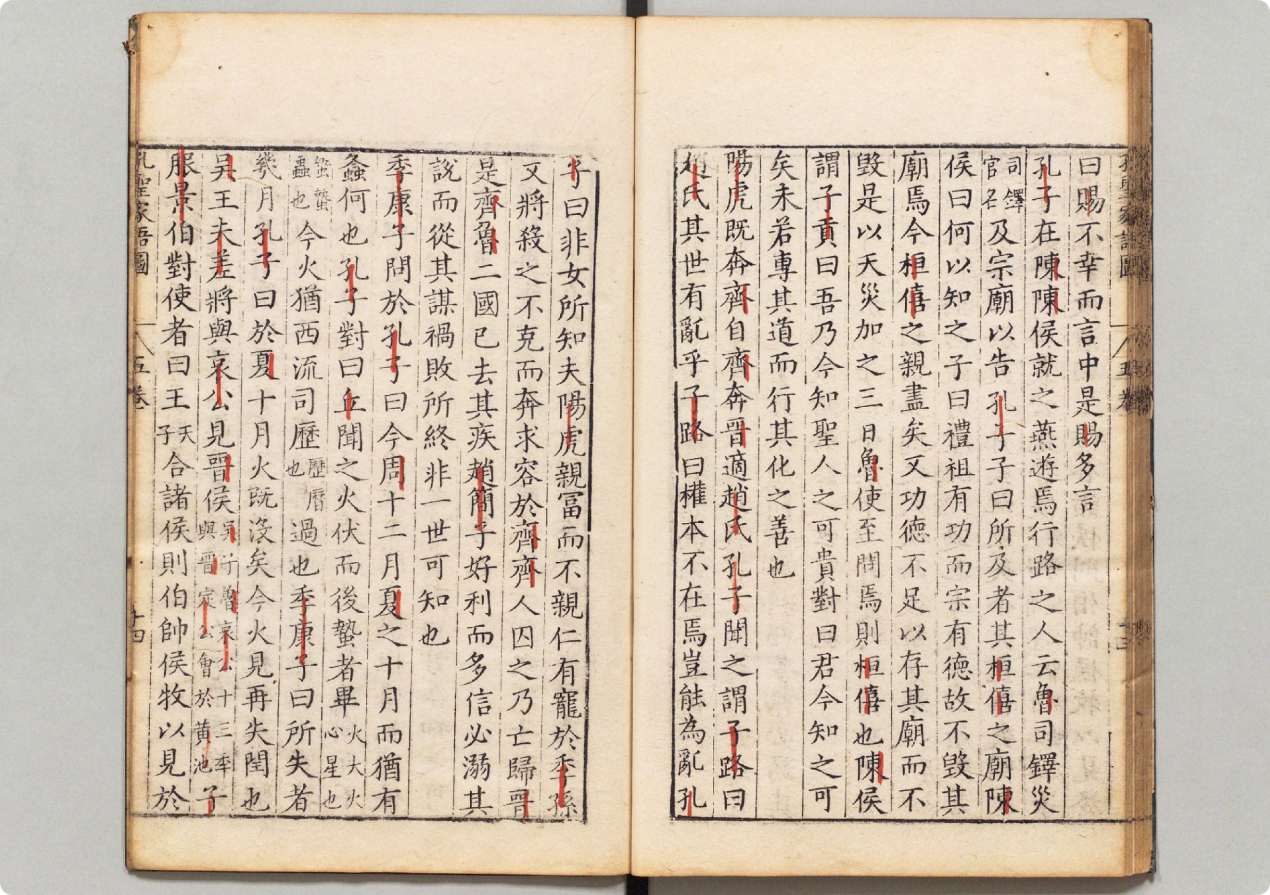 孔聖家語圖 五卷 十三
曰賜不幸而言中是賜多言
孔子在陳陳侯就之燕遊焉行路之人云魯司鐸災
司鐸官名及宗廟以告孔子子曰所及者其桓僖之廟陳
侯曰何以知之子曰禮祖有功而宗有德故不毀其
廟焉今桓僖之親盡矣又功德不足以存其廟而不
毀是以天災加之三日魯使至問焉則桓僖也陳侯
謂子貢曰吾乃今知聖人之可貴對曰君今知之可
矣未若專其道而行其化之善也
陽虎既奔齊自齊奔晉適趙氏孔子聞之謂子路曰
趙氏其世有亂乎子路曰權本不在焉豈能為亂孔
子曰非女所知夫陽虎親冨而不親仁有寵於季孫
又將殺之不克而奔求容於齊齊人囚之乃亡歸晉
是齊魯二國已去其疾趙簡子好利而多信必溺其
說而從其謀禍敗所終非一世可知也
季康子問於孔子曰今周十二月夏之十月而猶有
螽何也孔子對曰丘聞之火伏而後蟄者畢火大火心星也
蟄蟄蟲也今火猶西流司歷歷曆也過也季康子曰所失者
幾月孔子曰於夏十月火既沒矣今火見再失閏也
吳王夫差將與哀公見晉侯吳子魯哀公十三年與晉定公會於黃池子
服景伯對使者曰王天子合諸侯則伯帥侯牧以見於
孔聖家語圖 五卷 十四